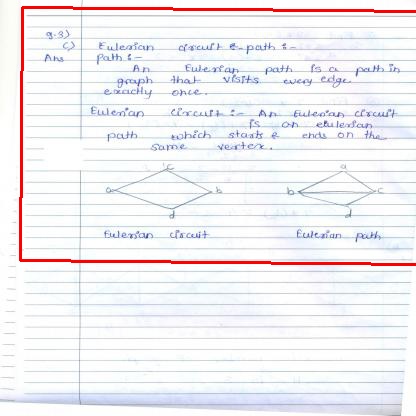 q.3)
c) Eulerian circuit & path :-
Ans path :-
An Eulerian path is a path in
graph that visits every edge
exactly once.
Eulerian circuit :- An Eulerian circuit
is an eulerian
path which starts & ends on the
same vertex.
c a
a b b c
d d
Eulerian circuit Eulerian path